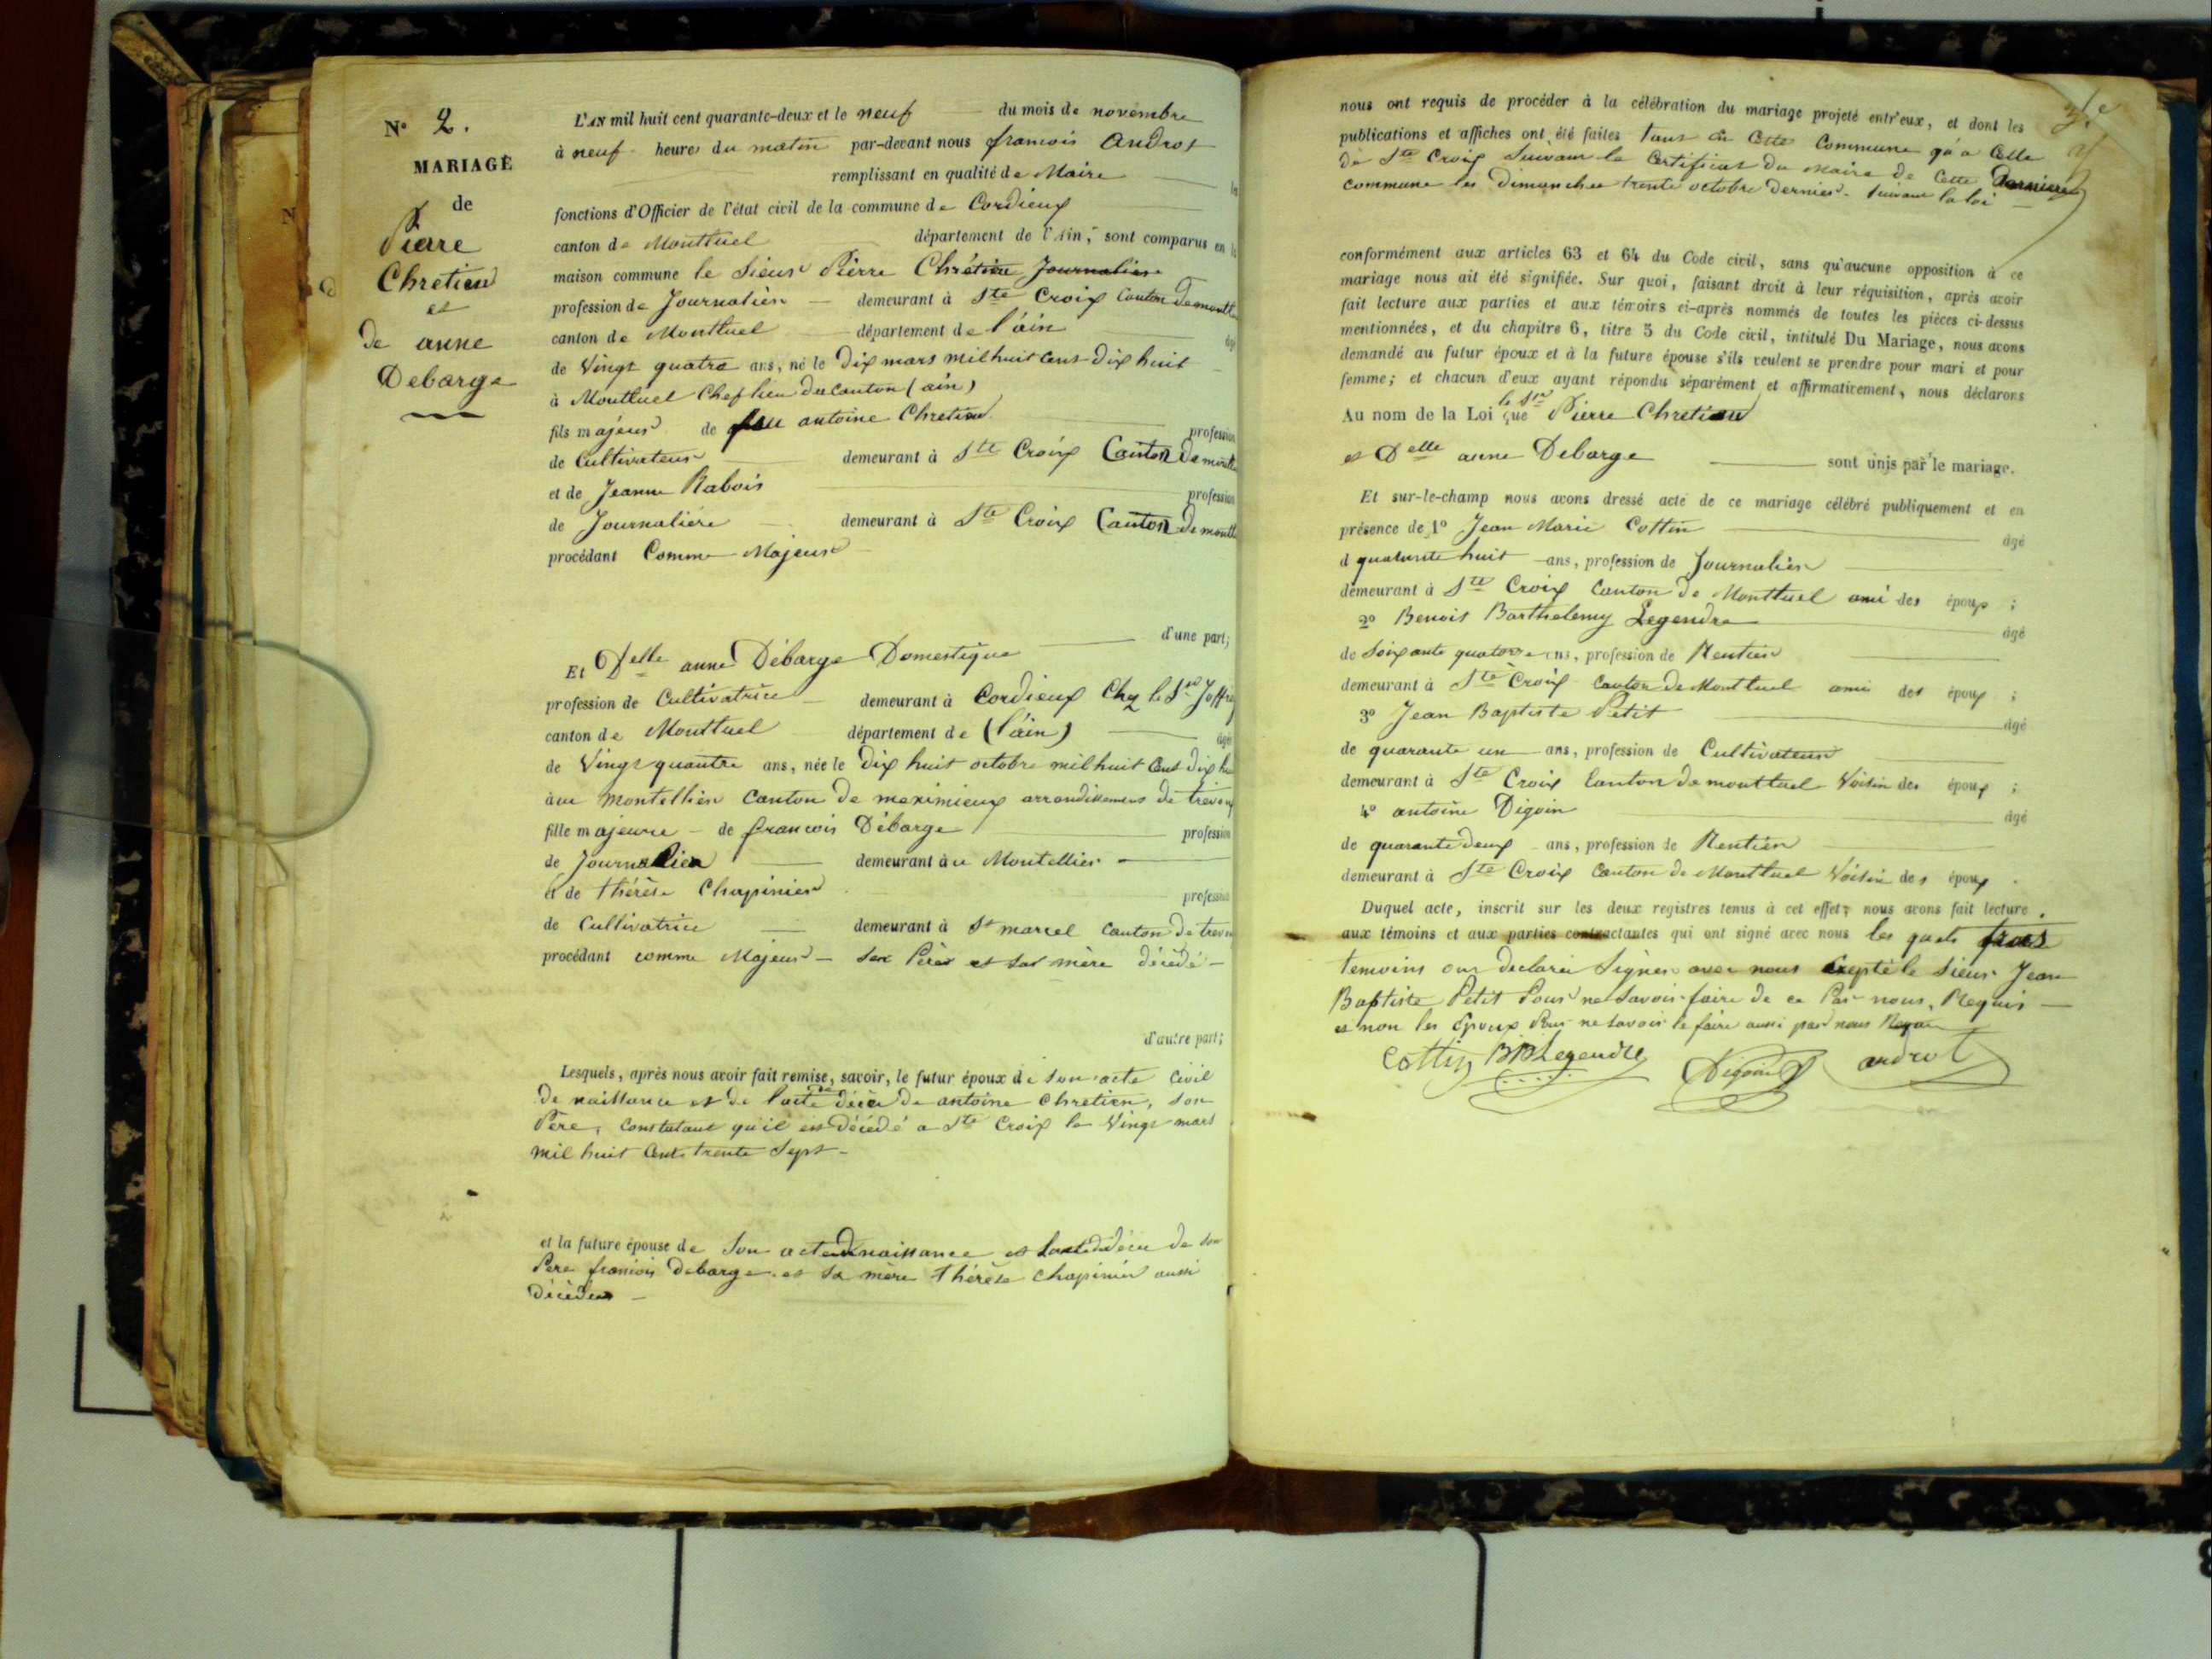 N° 2.
MARIAGE
de
Piere
Chretien
et
de anne
Debarge
L'AN mil huit cent quarante-deux et le neuf du mois de novembre
à neuf heures du matin par-devant nous francois Androt
remplissant en qualité de Maire
fonctions d'Officier de l'état civil de la commune de Cordieux
canton de Montluel département de l'Ain, sont comparus en la
maison commune le Sieur Pierre Chrétien Journalier
profession de Journalier demeurant à Ste Croix Canton de montl
canton de Montluel département de l'ain
de Vingt quatre ans, né le Dix mars mil huit cent Dix huit
à Montluel Chef lieu du Canton (ain)
fils majeur de feu antoine Chretien profession
de Cultivateur demeurant à Ste Croix Canton de montl
et de Jeanne Rabois profession
de Journaliére demeurant à Ste Croix Canton de montl
procédant Comme Majeur
d'une part;
Et Delle anne Débarge Domestique
profession de Cultivatrice demeurant à Cordieux Chez le Sr Joffr
canton de Montluel département de (l'ain) agée
de Vingt quantre ans, née le Dix huit octobre mil huit Cent dix hu
àu Montellier Canton de meximieux arrondissement de trevoux
fille majeure de francois Débarge profession
de Journalier demeurant àu Montellier
et de thérèse Chapinier profession
de Cultivatrice demeurant à St marcel Canton de trevo
procédant comme Majeur - Ses Pères et Sas mère décédé -
d'autre part;
Lesquels, après nous avoir fait remise, savoir, le futur époux de Son acte Civil
De naissance et de l'acte de décès De antoine Chretien, Son
Père, Constatant qu'il est décédé a Ste Croix le Vingt mars
mil huit Cents trente Sept -
et la future épouse de Son acte de naissance et l'acte de décès de son
Pere francois Debarge et Sa mère thérèse Chapinier aussi
décédes -
nous ont requis de procéder à la célébration du mariage projeté entr'eux, et dont les
publications et affiches ont été faites tant en Cette Commune qu'a Celle
de Ste Croix Suivant le Certificat du Maire de Cette Dernière
Commune les Dimanches trente octobre Dernier Suivant la loi
conformément aux articles 63 et 64 du Code civil, sans qu'aucune opposition à ce
mariage nous ait été signifiée. Sur quoi, faisant droit à leur réquisition, après avoir
fait lecture aux parties et aux témoins ci-après nommés de toutes les pièces ci-dessus
mentionnées, et du chapitre 6, titre 5 du Code civil, intitulé Du Mariage, nous avons
demandé au futur époux et à la future épouse s'ils veulent se prendre pour mari et pour
femme; et chacun d'eux ayant répondu séparément et affirmativement, nous déclarons
Au nom de la Loi que le Sr Pierre Chretien
et Delle anne Debarge sont unis par le mariage.
Et sur-le-champ nous avons dressé acte de ce mariage célébré publiquement et en
présence de 1° Jean Marie Cottin agé
d quarante huit ans, profession de Journalier
demeurant à Ste Croix Canton de Montluel ami des époux ;
2° Benoit Barthelemy Legendre agé
de Soixante quatorze ans, profession de Rentier
demeurant à Ste Croix Canton de Montluel ami des époux ;
3° Jean Baptiste Petit agé
de quarante un ans, profession de Cultivateur
demeurant à Ste Croix Canton de montluel Voisin des époux ;
4° antoine Digoin agé
de quarante deux ans, profession de Rentier
demeurant à Ste Croix Canton de Montluel Voisin des époux .
Duquel acte, inscrit sur les deux registres tenus à cet effet, nous avons fait lecture
aux témoins et aux parties contractantes qui ont signé avec nous les trois
temoins ont declarer Signer avec nous Excepté le Sieur Jean
Baptiste Petit Pour ne Savoir faire de ce Par nous Requis
et non les Epoux Pour ne Savoir le faire aussi par nous Requis
Cottin BB Legendre Digoin androt